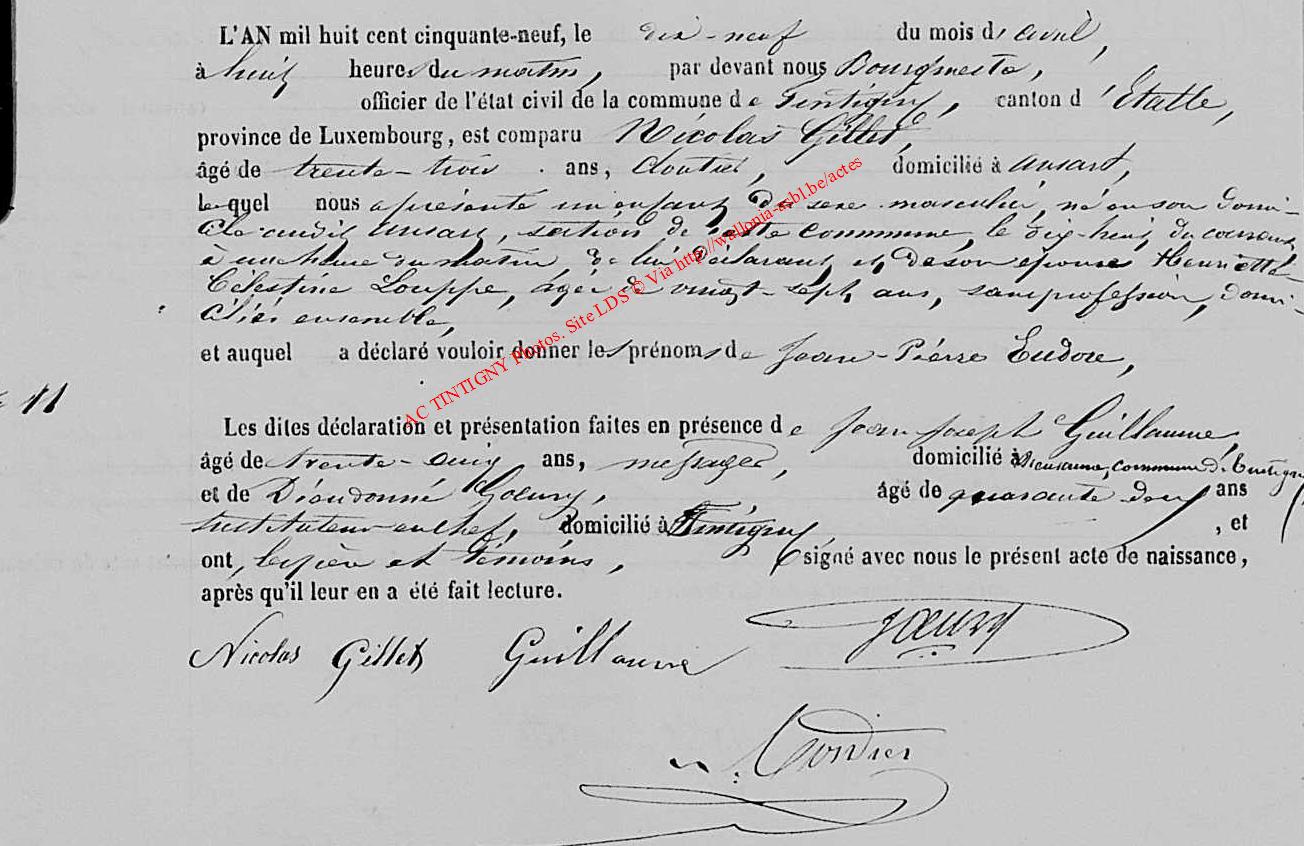 L'AN mil huit cent cinquante-neuf, le dix-neuf du mois d'avril,
à huit heures du matin, par devant nous Bourgmestre,
officier de l'état civil de la commune de Tintigny, canton d'Etalle,
province de Luxembourg, est comparu Nicolas Gillet,
âgé de trente-trois ans, cloutier, domicilié à Ansart,
lequel nous a présenté un enfant du sexe masculin, né en son domi-
cile audit Ansart, section de cette commune, le dix-huit du courant,
à une heure du matin, de lui déclarant, et de son épouse Henriette
Célestine Louppe, âgée de vingt-sept ans, sans profession, domi-
ciliés ensemble,
et auquel a déclaré vouloir donner les prénoms de Jean-Pierre Eudore,
11
Les dites déclaration et présentation faites en présence de Jean Joseph Guillaume,
âgé de trente-cinq ans, messager, domicilié à commune de Tintigny
et de Dieudonné Goeury, âgé de quarante deux ans
instituteur en chef, domicilié à Tintigny, et
ont, le père et témoins, signé avec nous le présent acte de naissance,
après qu'il leur en a été fait lecture.
Nicolas Gillet Guillaume Goeury
AC TINTIGNY Photos. Site LDS © Via http://wallonia-asbl.be/actes